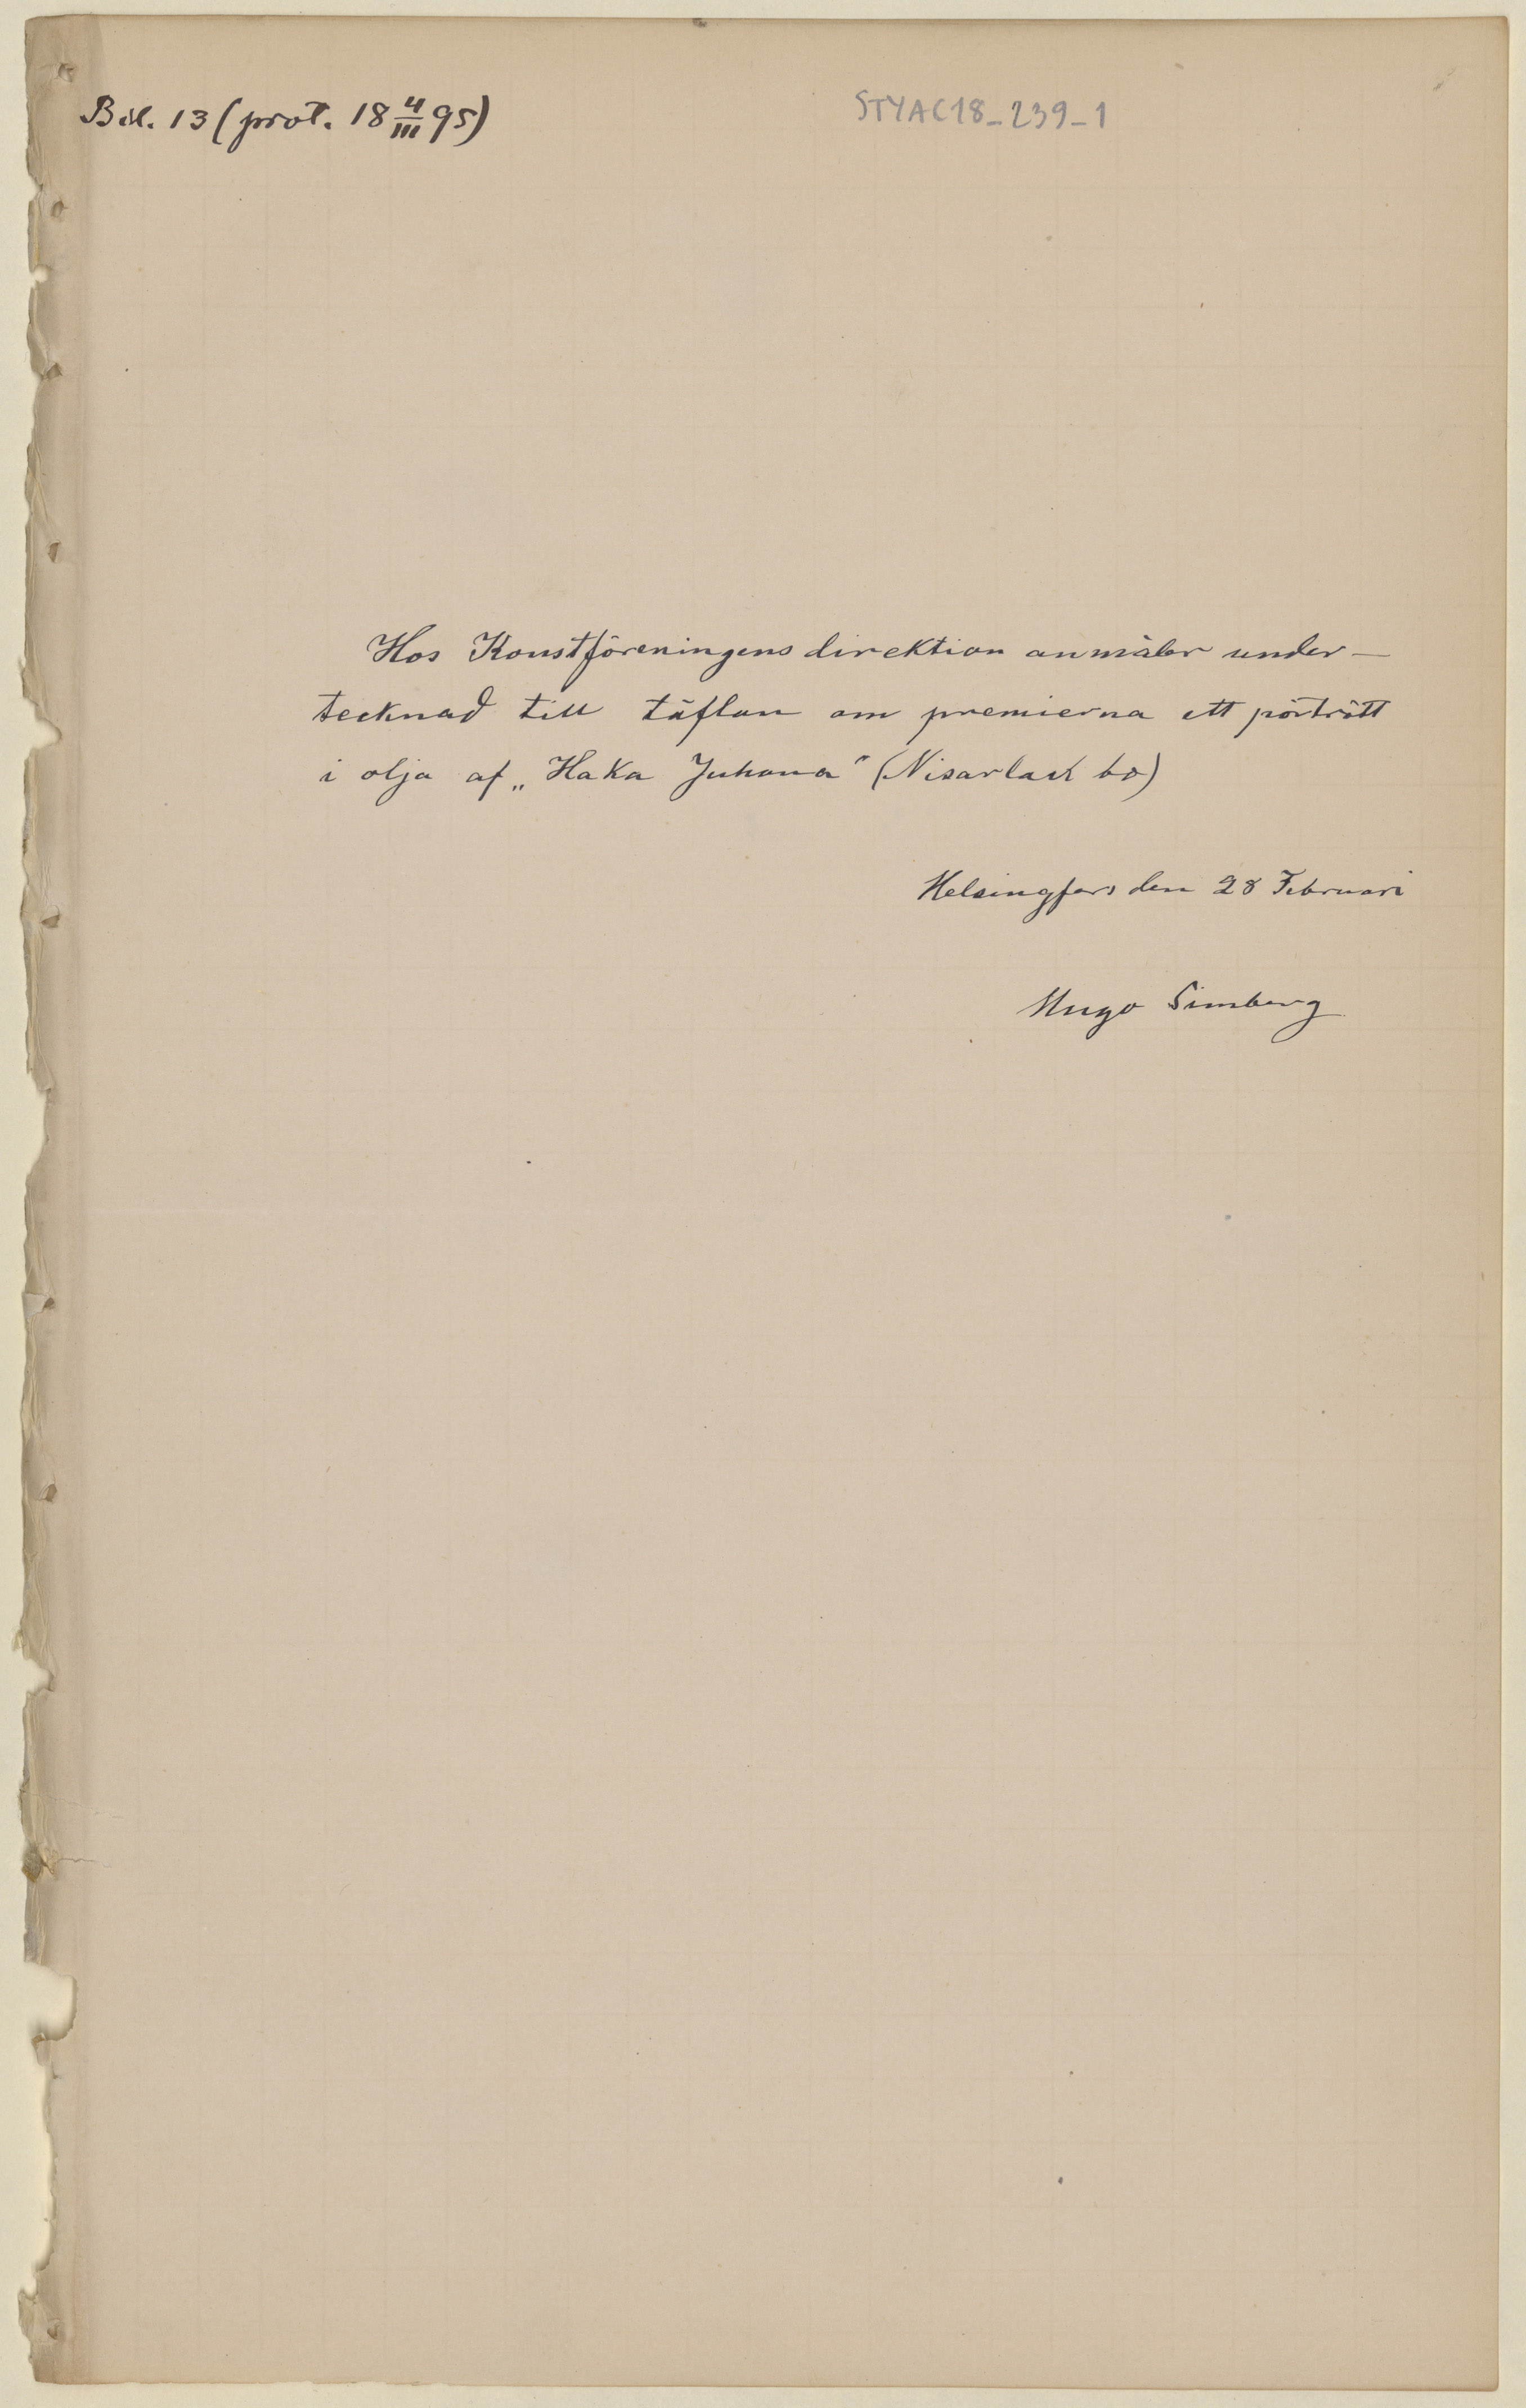 Bil. 13 (prot. 18 4/III 95)
STYAC18_239_1
Hos Konstföreningens direktion anmäler under-
tecknad till täflan om premierna ett porträtt
i olja af „Haka Juhana" (Nisarlask bo)
Helsingfors den 28 Februari
Hugo Simberg